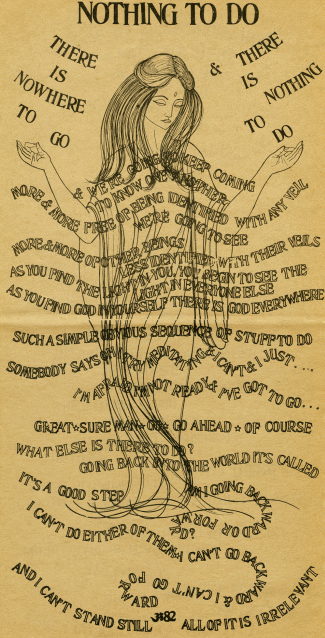 NOTHING TO DO
THERE
IS
NOWHERE
TO
GO
&
THERE
IS
NOTHING
TO
DO
& WE'RE GOING TO KEEP COMING
TO KNOW ONE ANOTHER
MORE & MORE FREE OF BEING IDENTIFIED WITH ANY VEIL
WE'RE GOING TO SEE
MORE & MORE OF OTHER BEINGS
LESS IDENTIFIED WITH THEIR VEILS
AS YOU FIND THE LIGHT IN YOU, YOU BEGIN TO SEE THE
LIGHT IN EVERYONE ELSE
AS YOU FIND GOD IN YOURSELF THERE IS GOD EVERYWHERE
SUCH A SIMPLE OBVIOUS SEQUENCE OF STUFF TO DO
SOMEBODY SAYS TRY MEDITATING & I CAN'T & I JUST....
I'M AFRAID I'M NOT READY & I'VE GOT TO GO...
GREAT★SURE MAN★ GO AHEAD ★ OF COURSE
WHAT ELSE IS THERE TO DO?
GOING BACK INTO THE WORLD IT'S CALLED
IT'S A GOOD STEP
AM I GOING BACKWARD OR FORWARD?
I CAN'T DO EITHER OF THEM
I CAN'T GO BACKWARD & I CAN'T GO FORWARD
AND I CAN'T STAND STILL
ALL OF IT IS IRRELEVANT